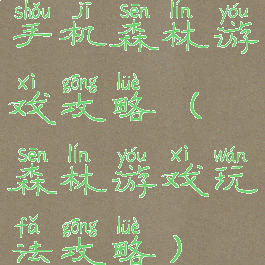 shǒu jī sēn lín yóu
手机森林游
xì gōng lüè
戏攻略（
sēn lín yóu xì wán
森林游戏玩
fǎ gōng lüè
法攻略）